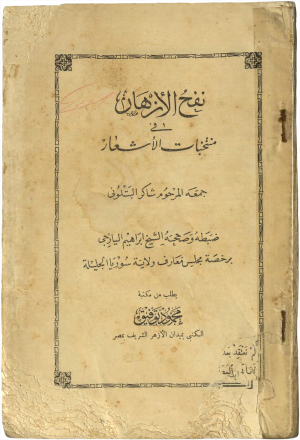 نفح الأزهار
في
منتخبات الأشعار
جمعه المرحوم شاكر البتلوني
ضبطه وصححه الشيخ ابراهيم اليازجي
برخصة مجلس معارف ولاية سوريا الجليلة
يطلب من مكتبة
محمود توفيق
الكتبي بميدان الأزهر الشريف بمصر